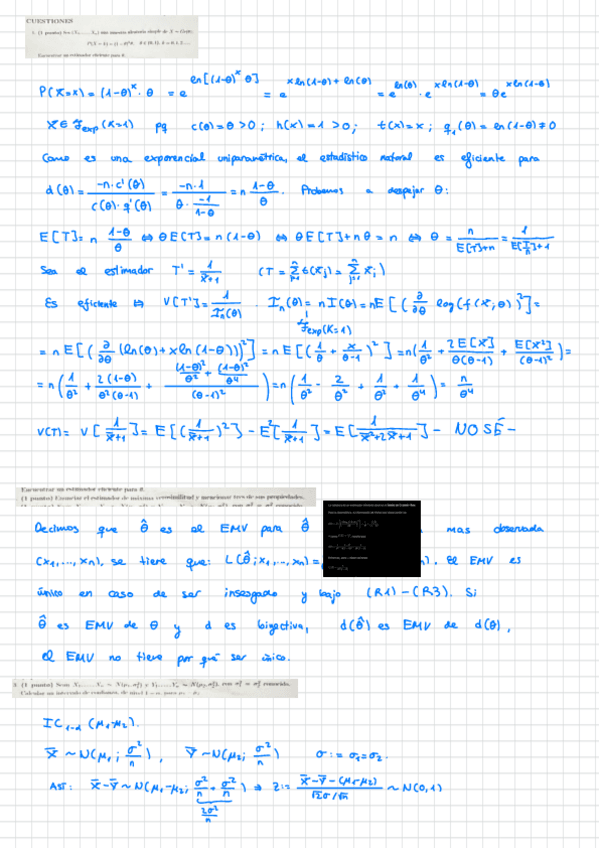 CUESTIONES
P(X=x) = (1-θ)^x · θ = e^{ln[(1-θ)^x θ]} = e^{x ln(1-θ) + ln(θ)} = e^{ln(θ)} · e^{x ln(1-θ)} = θ e^{x ln(1-θ)}
X ∈ F_exp(K=1) pq c(θ) = θ > 0 ; h(x) = 1 > 0 ; t(x) = x ; q_1(θ) = ln(1-θ) ≠ 0
Como es una exponencial uniparamétrica, el estadístico natural es eficiente para
d(θ) = -n·c'(θ) / c(θ)·q'(θ) = -n·1 / θ · -1/1-θ = n 1-θ/θ . Probamos a despejar θ:
E[T] = n 1-θ/θ ⇔ θE[T] = n(1-θ) ⇔ θE[T] + nθ = n ⇔ θ = n/E[T]+n = 1/E[T/n]+1
Sea el estimador T' = 1/x̄+1 (T = Σ t(x_j) = Σ x_j)
Es eficiente ⇔ V[T'] = 1/I_n(θ) . I_n(θ) = nI(θ) = nE[(∂/∂θ log(f(x,θ))^2] =
F_exp(K=1)
= n E[(∂/∂θ (ln(θ) + x ln(1-θ)))^2] = n E[(1/θ + x/θ-1)^2] = n(1/θ^2 + 2E[X]/θ(θ-1) + E[X^2]/(θ-1)^2) =
= n(1/θ^2 + 2(1-θ)/θ^2(θ-1) + (1-θ)^2/θ^2 + (1-θ)^2/θ^4 / (θ-1)^2) = n(1/θ^2 - 2/θ^2 + 1/θ^2 + 1/θ^4) = n/θ^4
V(T) = V[1/x̄+1] = E[(1/x̄+1)^2] - E^2[1/x̄+1] = E[1/x̄^2+2x̄+1] - NO SÉ -
Encuentra un estimador eficiente para θ.
(1 punto) Enunciar el estimador de máxima verosimilitud y mencionar tres de sus propiedades.
Decimos que θ̂ es el EMV para θ̂ mas observada
(x1,...,xn), se tiene que: L(θ̂; x1,...,xn) = ). El EMV es
único en caso de ser insesgado y bajo (R1)-(R3). Si
θ̂ es EMV de θ y d es biyectiva, d(θ̂) es EMV de d(θ),
el EMV no tiene por qué ser único.
Calcular un intervalo de confianza, de nivel 1 - α, para μ1 - μ2.
IC_{1-α} (μ1-μ2).
X̄ ~ N(μ1; σ²/n) , Ȳ ~ N(μ2; σ²/n) σ := σ1 = σ2.
Así: X̄-Ȳ ~ N(μ1-μ2; σ²/n + σ²/n) ⇒ Z := X̄-Ȳ-(μ1-μ2) / √2σ/√n ~ N(0,1)
2σ²/n